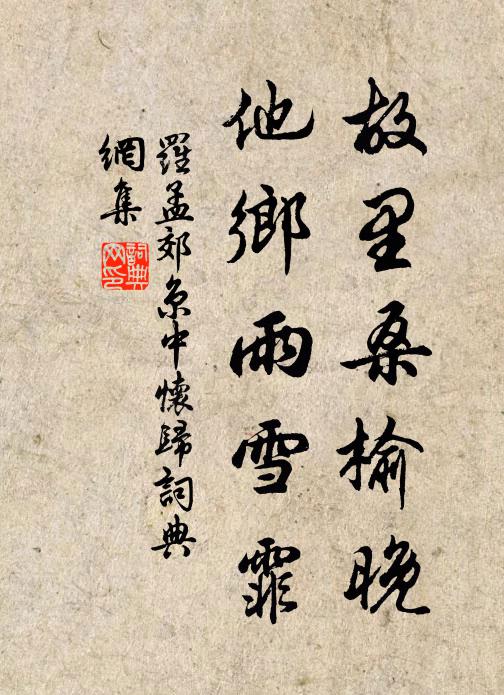 故里桑榆晚
他鄉雨雪霏
羅孟郊京中懷歸詞典
網集
詞典网印